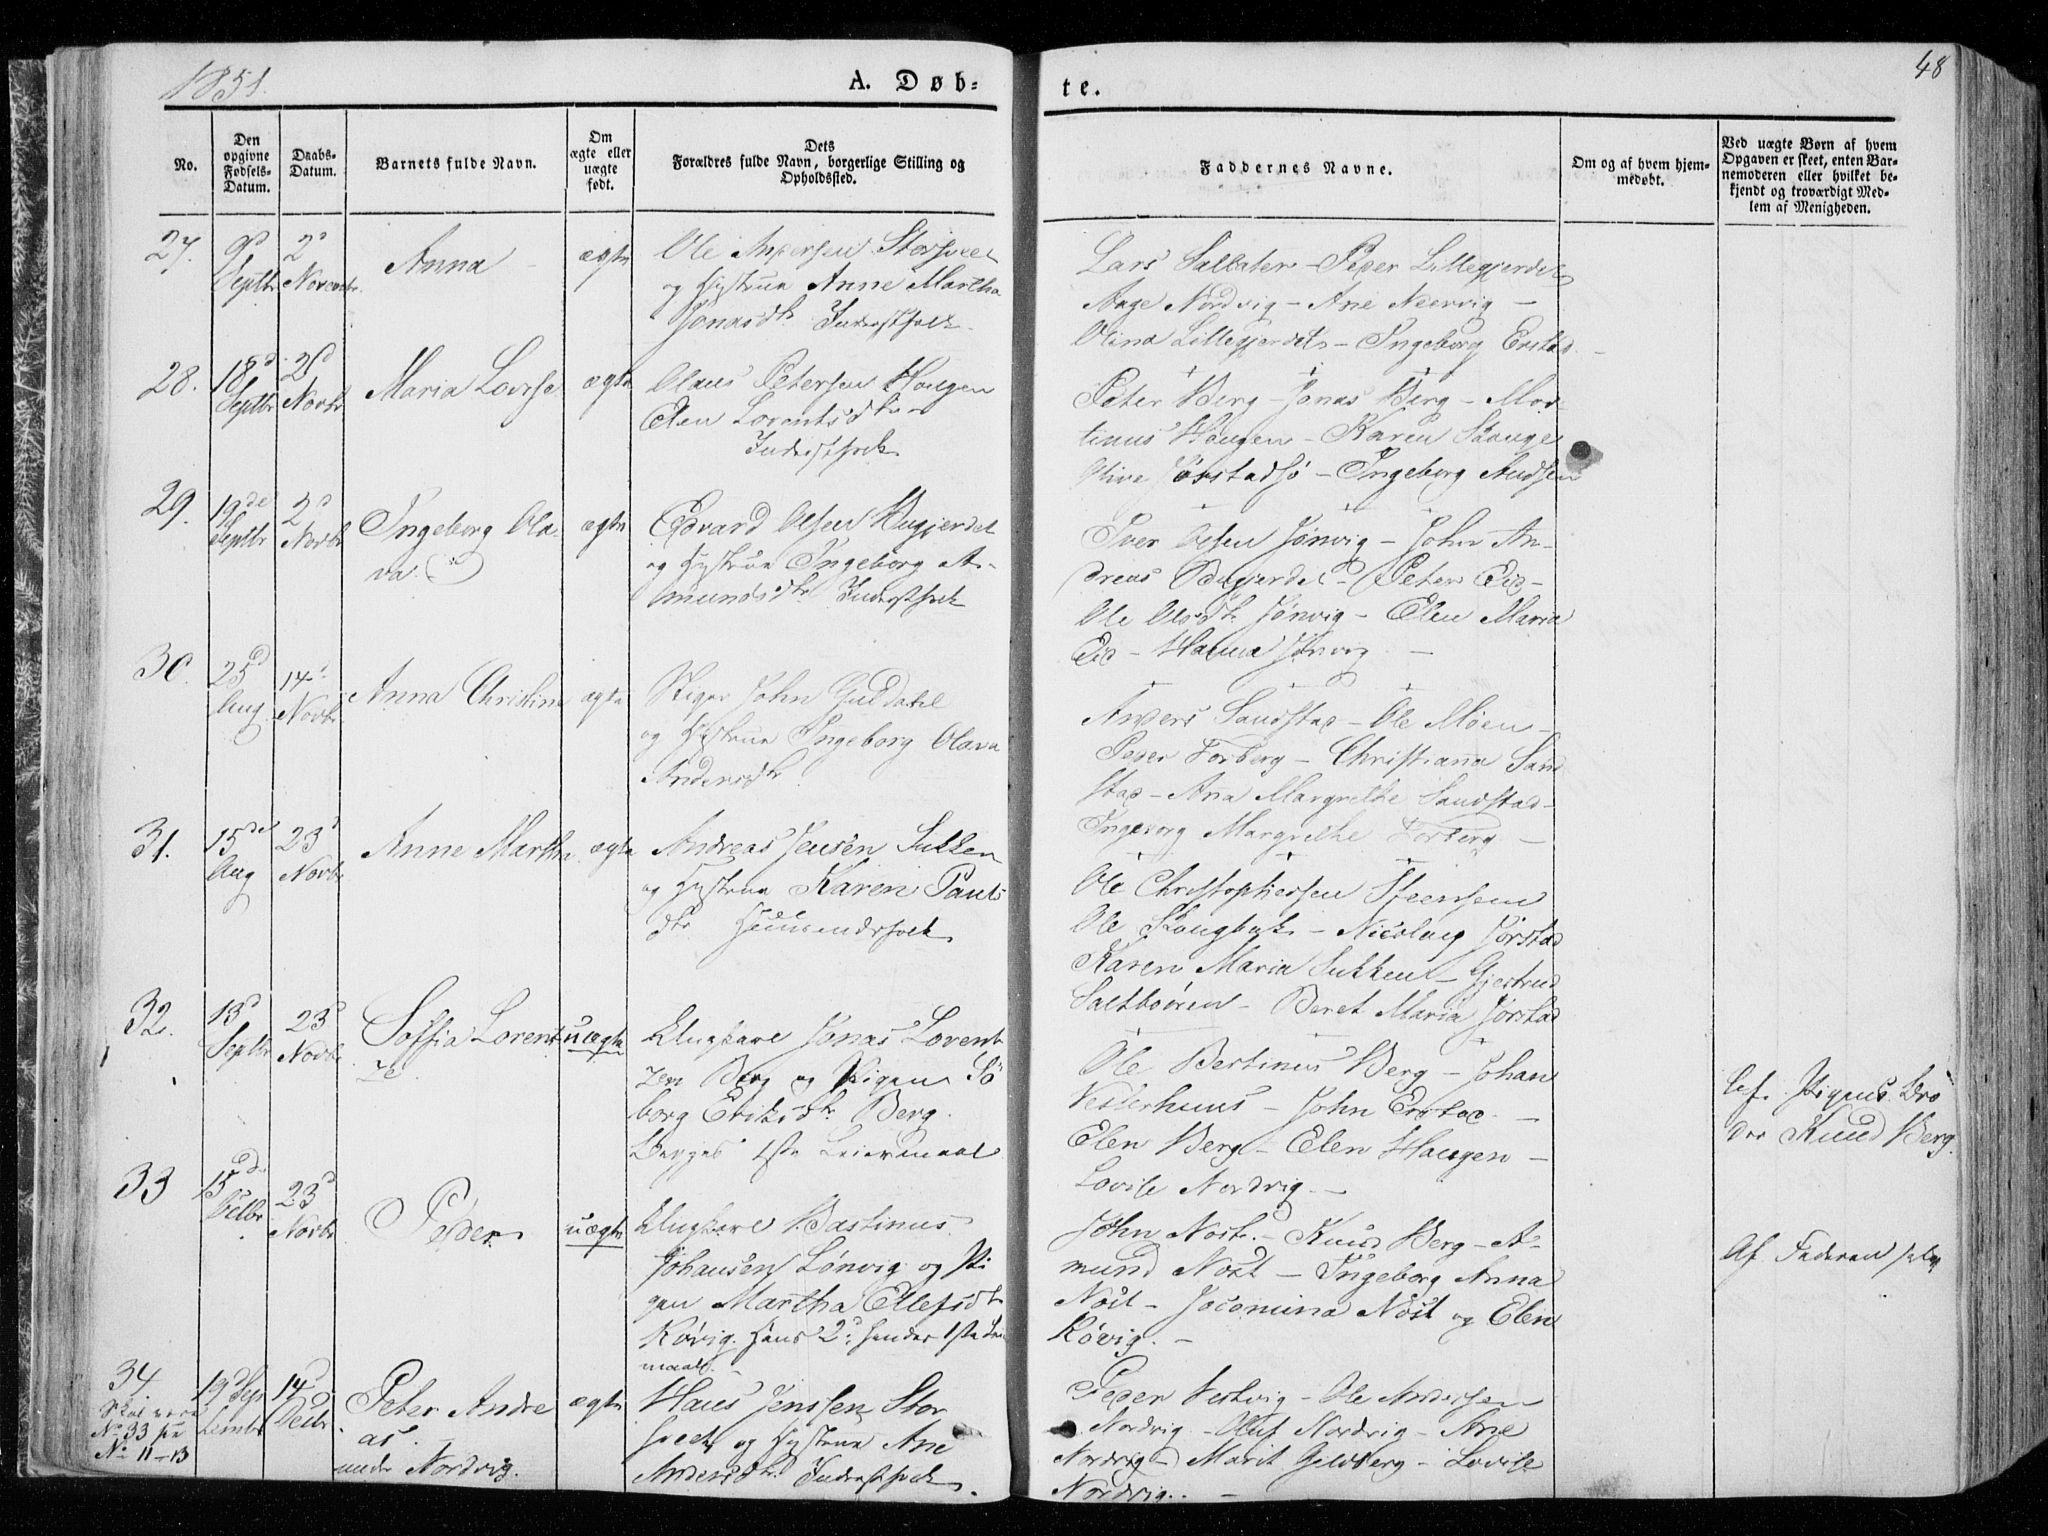 1851.
A. Døb-
te.
48
No.
Den
opgivne
Fødsels-
Datum.
Daabs-
Datum.
Barnets fulde Navn.
Om
ægte eller
uægte
født.
Dets
Forældres fulde Navn, borgerlige Stilling og
Opholdssted.
Faddernes Navne.
Om og af hvem hjem-
medøbt.
Ved uægte Børn af hvem
Opgaven er skeet, enten Bar-
nemoderen eller hvilket be-
kjendt og troværdigt Med-
lem af Menigheden.
27.
9d
Septbr
2d
Novembr.
Anna
ægte
Ole Andersen Storsveet
og Hustrue Anne Martha
Jonasdtr Inderstfolk
Lars Saltater - Peder Lillegjerdet
Aage Nordvig - Ane Neervig -
Olina Lillegjerdets - Ingeborg Erstad
28.
18d
Septbr
2d
Novbr
Maria Lovise
ægte
Olaus Petersen Haugen
Elen Lorentsdtr
Inderstfolk
Peter Berg - Jonas Berg - Mor-
tinus Haugen - Karen Skauge
Olive Jørstadsjø - Ingeborg Audsen
29.
19de
Septbr
2d
Novbr
Ingeborg Ola-
va.
ægte
Edvard Olsen Bugjerdet
og Hustrue Ingeborg A-
mundsdtr Inderstfolk
Iver Olsen Jønvig - John An-
dreas Bugjerdet - Peter Eid -
Ole Olsdtr Jønvig - Elen Maria
Eid - Hanna Jønvig. -
30.
25d
Aug.
14d
Novbr.
Anna Christine
ægte
Stiger John Guldahl
og Hustrue Ingeborg Olava
Andersdtr
Anders Sandstad - Ole Moen -
Peder Forberg - Christianna Sand
stad - Ana Margrethe Sandstad -
Ingeborg Margrethe Forberg -
31.
15de
Aug
23d
Novbr
Anne Martha
ægte
Andreas Jensen Sukken
og Hustrue Karen Pauls
dtr Huusmandsfolk
Ole Christophersen Steensem
Ole Skaugbak - Nicolay Jørstad
Karen Maria Sukken - Gjertrud
Saltbøren - Beret Maria Jørstad
32.
13d
Septbr
23d
Novbr
Soffia Lorent
ze
uægte
Ungkare Jonas Lorent
zen Berg og Pigen Sø
borg Eriksdtr Berg.
Begges 1ste Leiermaal
Ole Bertinus Berg - Johan
Vesterhuus - John Erstad -
Elen Berg - Elen Haugen -
Lovise Nordvig -
Af Pigens Bro
der Knud Berg.
33
15d
Octbr
23d
Novbr
Peder
uægte
Ungkare Bastinus
Johansen Lønvig og Pi
gen Martha Ellefsdtr
Røvig. Hans 2d hendes 1ste Lei
maal.
John Nost. - Knud Berg - A-
mund Nost - Ingeborg Anna
Nost - Jocomina Nost og Elen
Røvig. -
Af Faderen selv
34.
Skal være
No 33 see
No 11-13
19d Sep
tembr
14d
Decbr
Peter Andre
as.
under Nordvig.
ægte
Hans Jenssen Stor
sveet og Hustrue Ane
Andersdtr. Inderstfolk.
Peder Vestvig - Ole Andersen
Nordvig - Oluf Nordvig - Ane
Nordvig - Marit Geldberg - Lovise
Nordvig. -